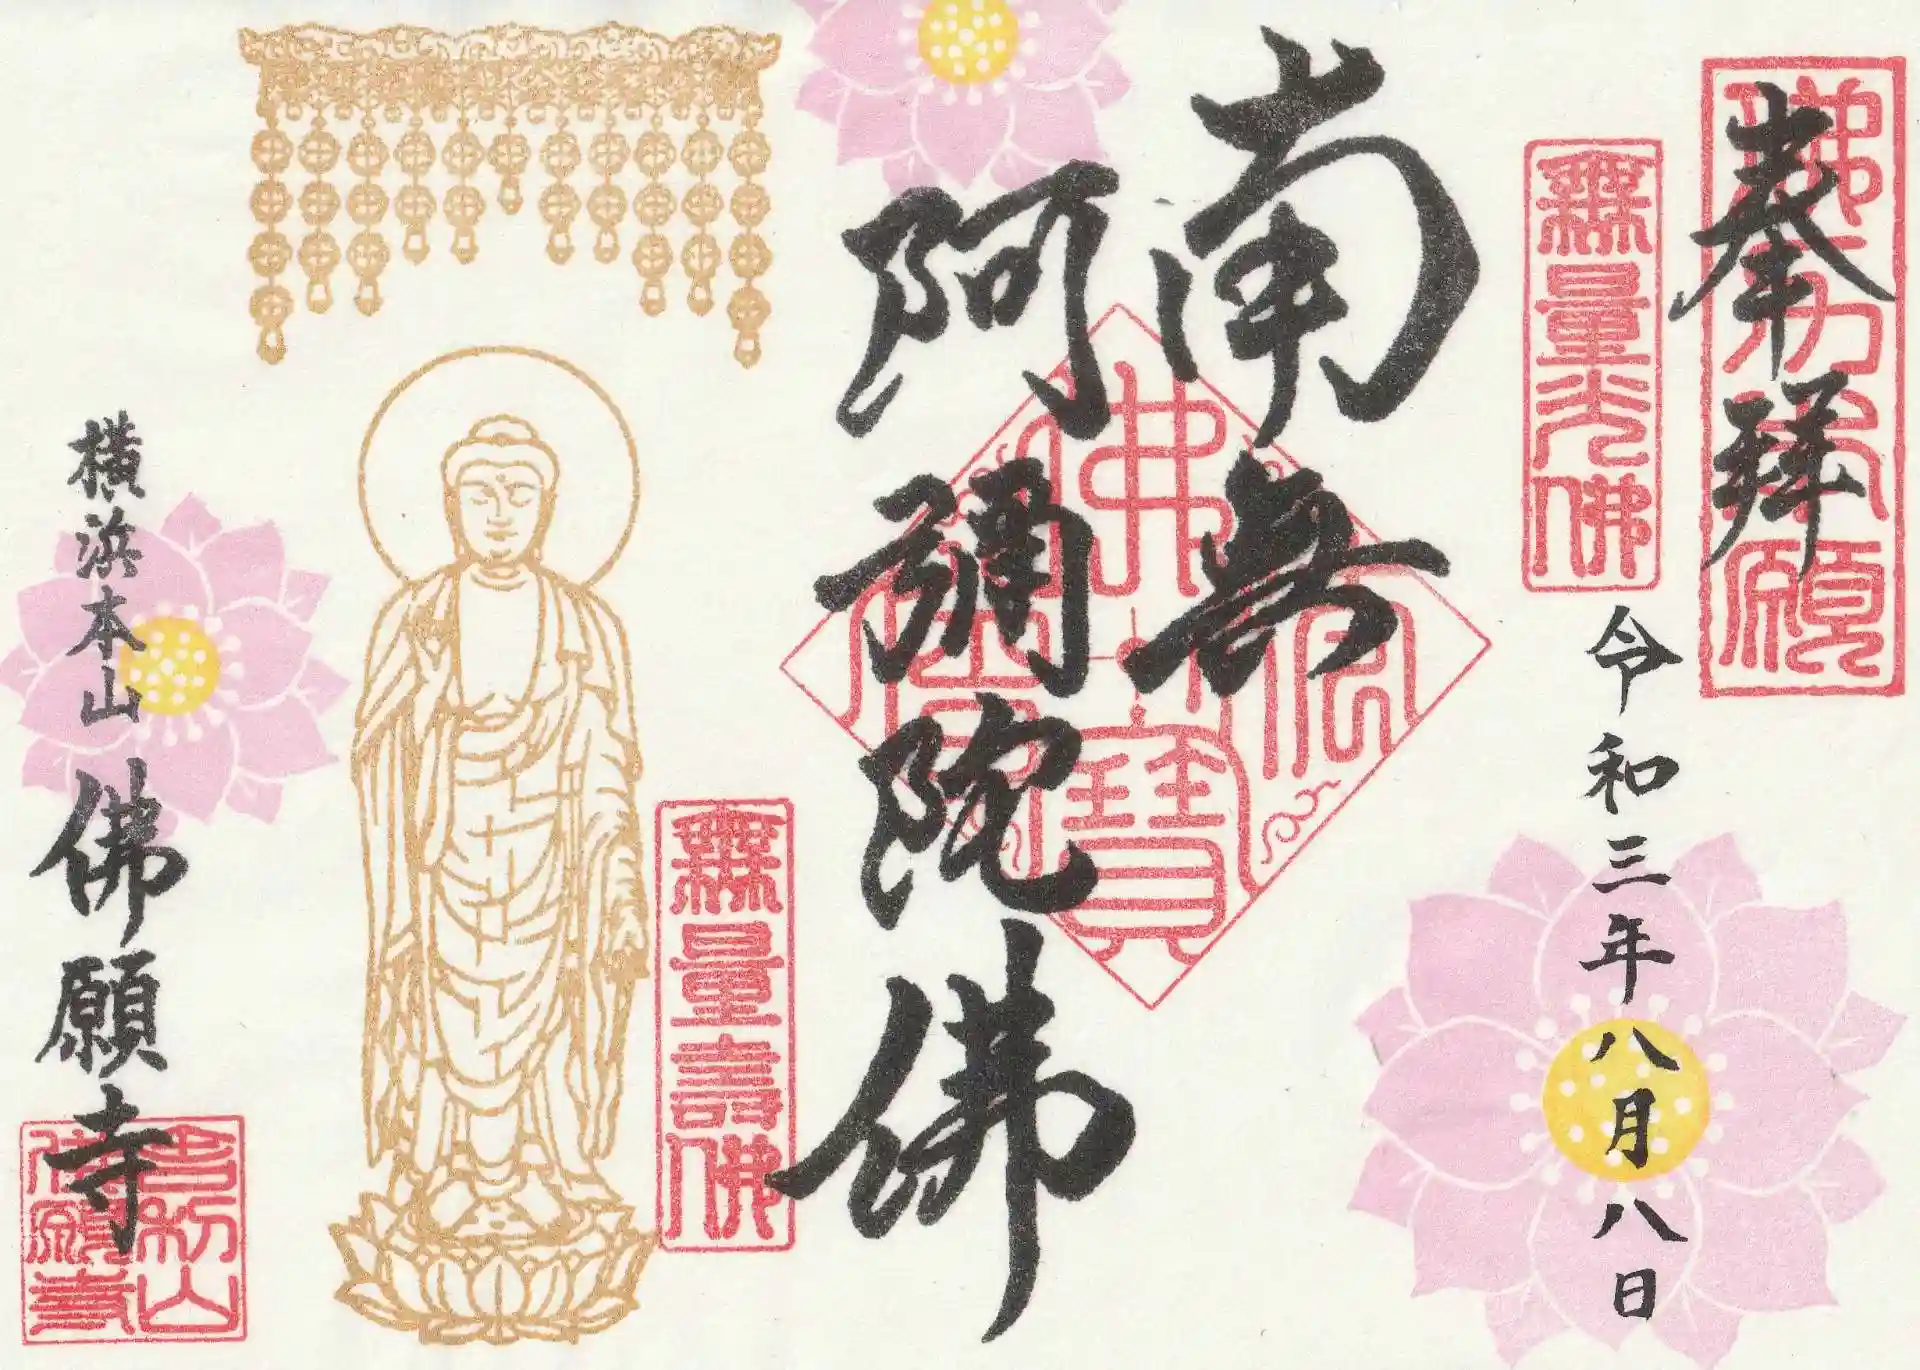 奉拜
無量光佛
令和三年八月八日
南無
阿彌陀佛
佛法僧寶
無量壽佛
横浜本山 佛願寺